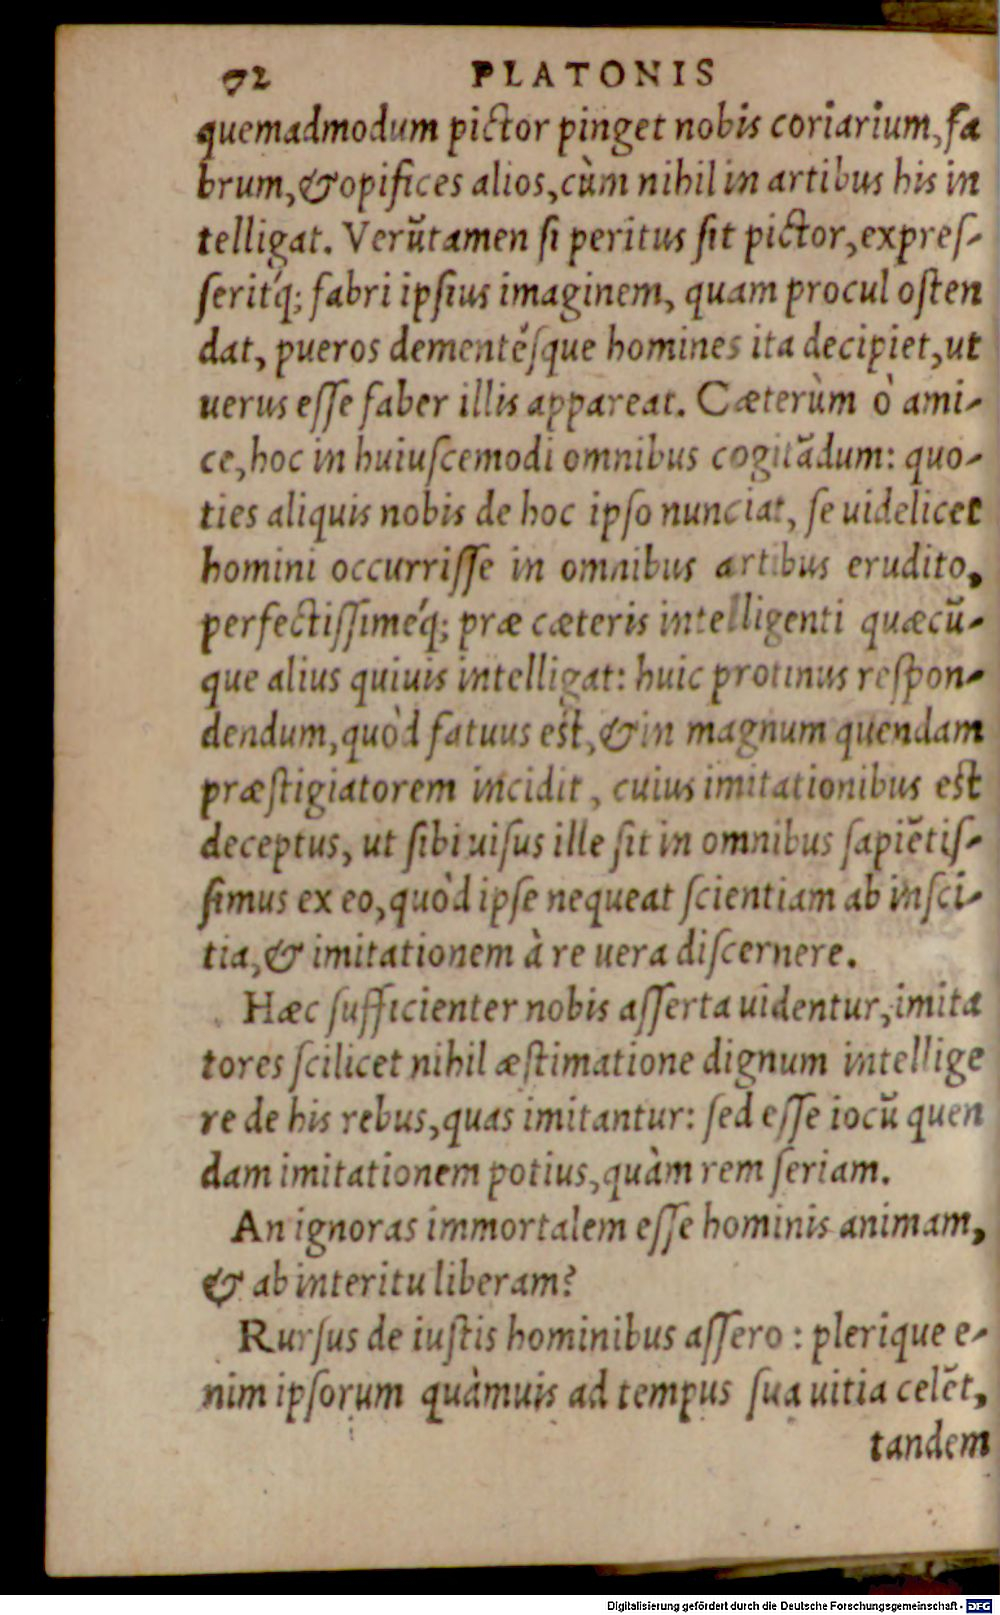 92 PLATONIS
quemadmodum pictor pinget nobis coriarium, fa
brum, & opifices alios, cùm nihil in artibus his in
telligat. Verũtamen ſi peritus ſit pictor, expreſ-
ſerit́q; fabri ipſius imaginem, quam procul oſten
dat, pueros dementéſque homines ita decipiet, ut
uerus eſſe faber illis appareat. Cæterùm ò ami-
ce, hoc in huiuſcemodi omnibus cogitãdum: quo-
ties aliquis nobis de hoc ipſo nunciat, ſe uidelicet
homini occurriſſe in omnibus artibus erudito,
perfectiſſimeq́; præ cæteris intelligenti quæcũ-
que alius quiuis intelligat: huic protinus reſpon-
dendum, quòd fatuus eſt, & in magnum quendam
præſtigiatorem incidit, cuius imitationibus eſt
deceptus, ut ſibi uiſus ille ſit in omnibus ſapiẽtiſ-
ſimus ex eo, quòd ipſe nequeat ſcientiam ab inſci-
tia, & imitationem à re uera diſcernere.
Hæc ſufficienter nobis aſſerta uidentur, imita
tores ſcilicet nihil æſtimatione dignum intellige
re de his rebus, quas imitantur: ſed eſſe iocũ quen
dam imitationem potius, quàm rem ſeriam.
An ignoras immortalem eſſe hominis animam,
& ab interitu liberam?
Rurſus de iuſtis hominibus aſſero: plerique e-
nim ipſorum quàmuis ad tempus ſua uitia celẽt,
tandem
Digitalisierung gefördert durch die Deutsche Forschungsgemeinschaft - DFG